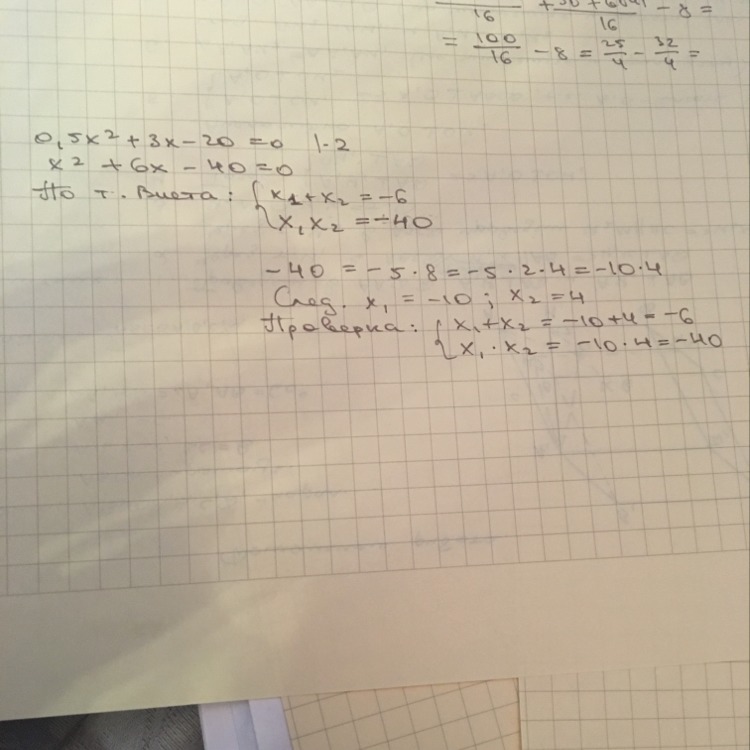 16
16 - 8 =
= 100/16 - 8 = 25/4 - 32/4 =
0,5x² + 3x - 20 = 0 |·2
x² + 6x - 40 = 0
По т. Виета: { x₁ + x₂ = -6
x₁ x₂ = -40
-40 = -5·8 = -5·2·4 = -10·4
След. x₁ = -10; x₂ = 4
Проверка: { x₁ + x₂ = -10 + 4 = -6
x₁ · x₂ = -10·4 = -40